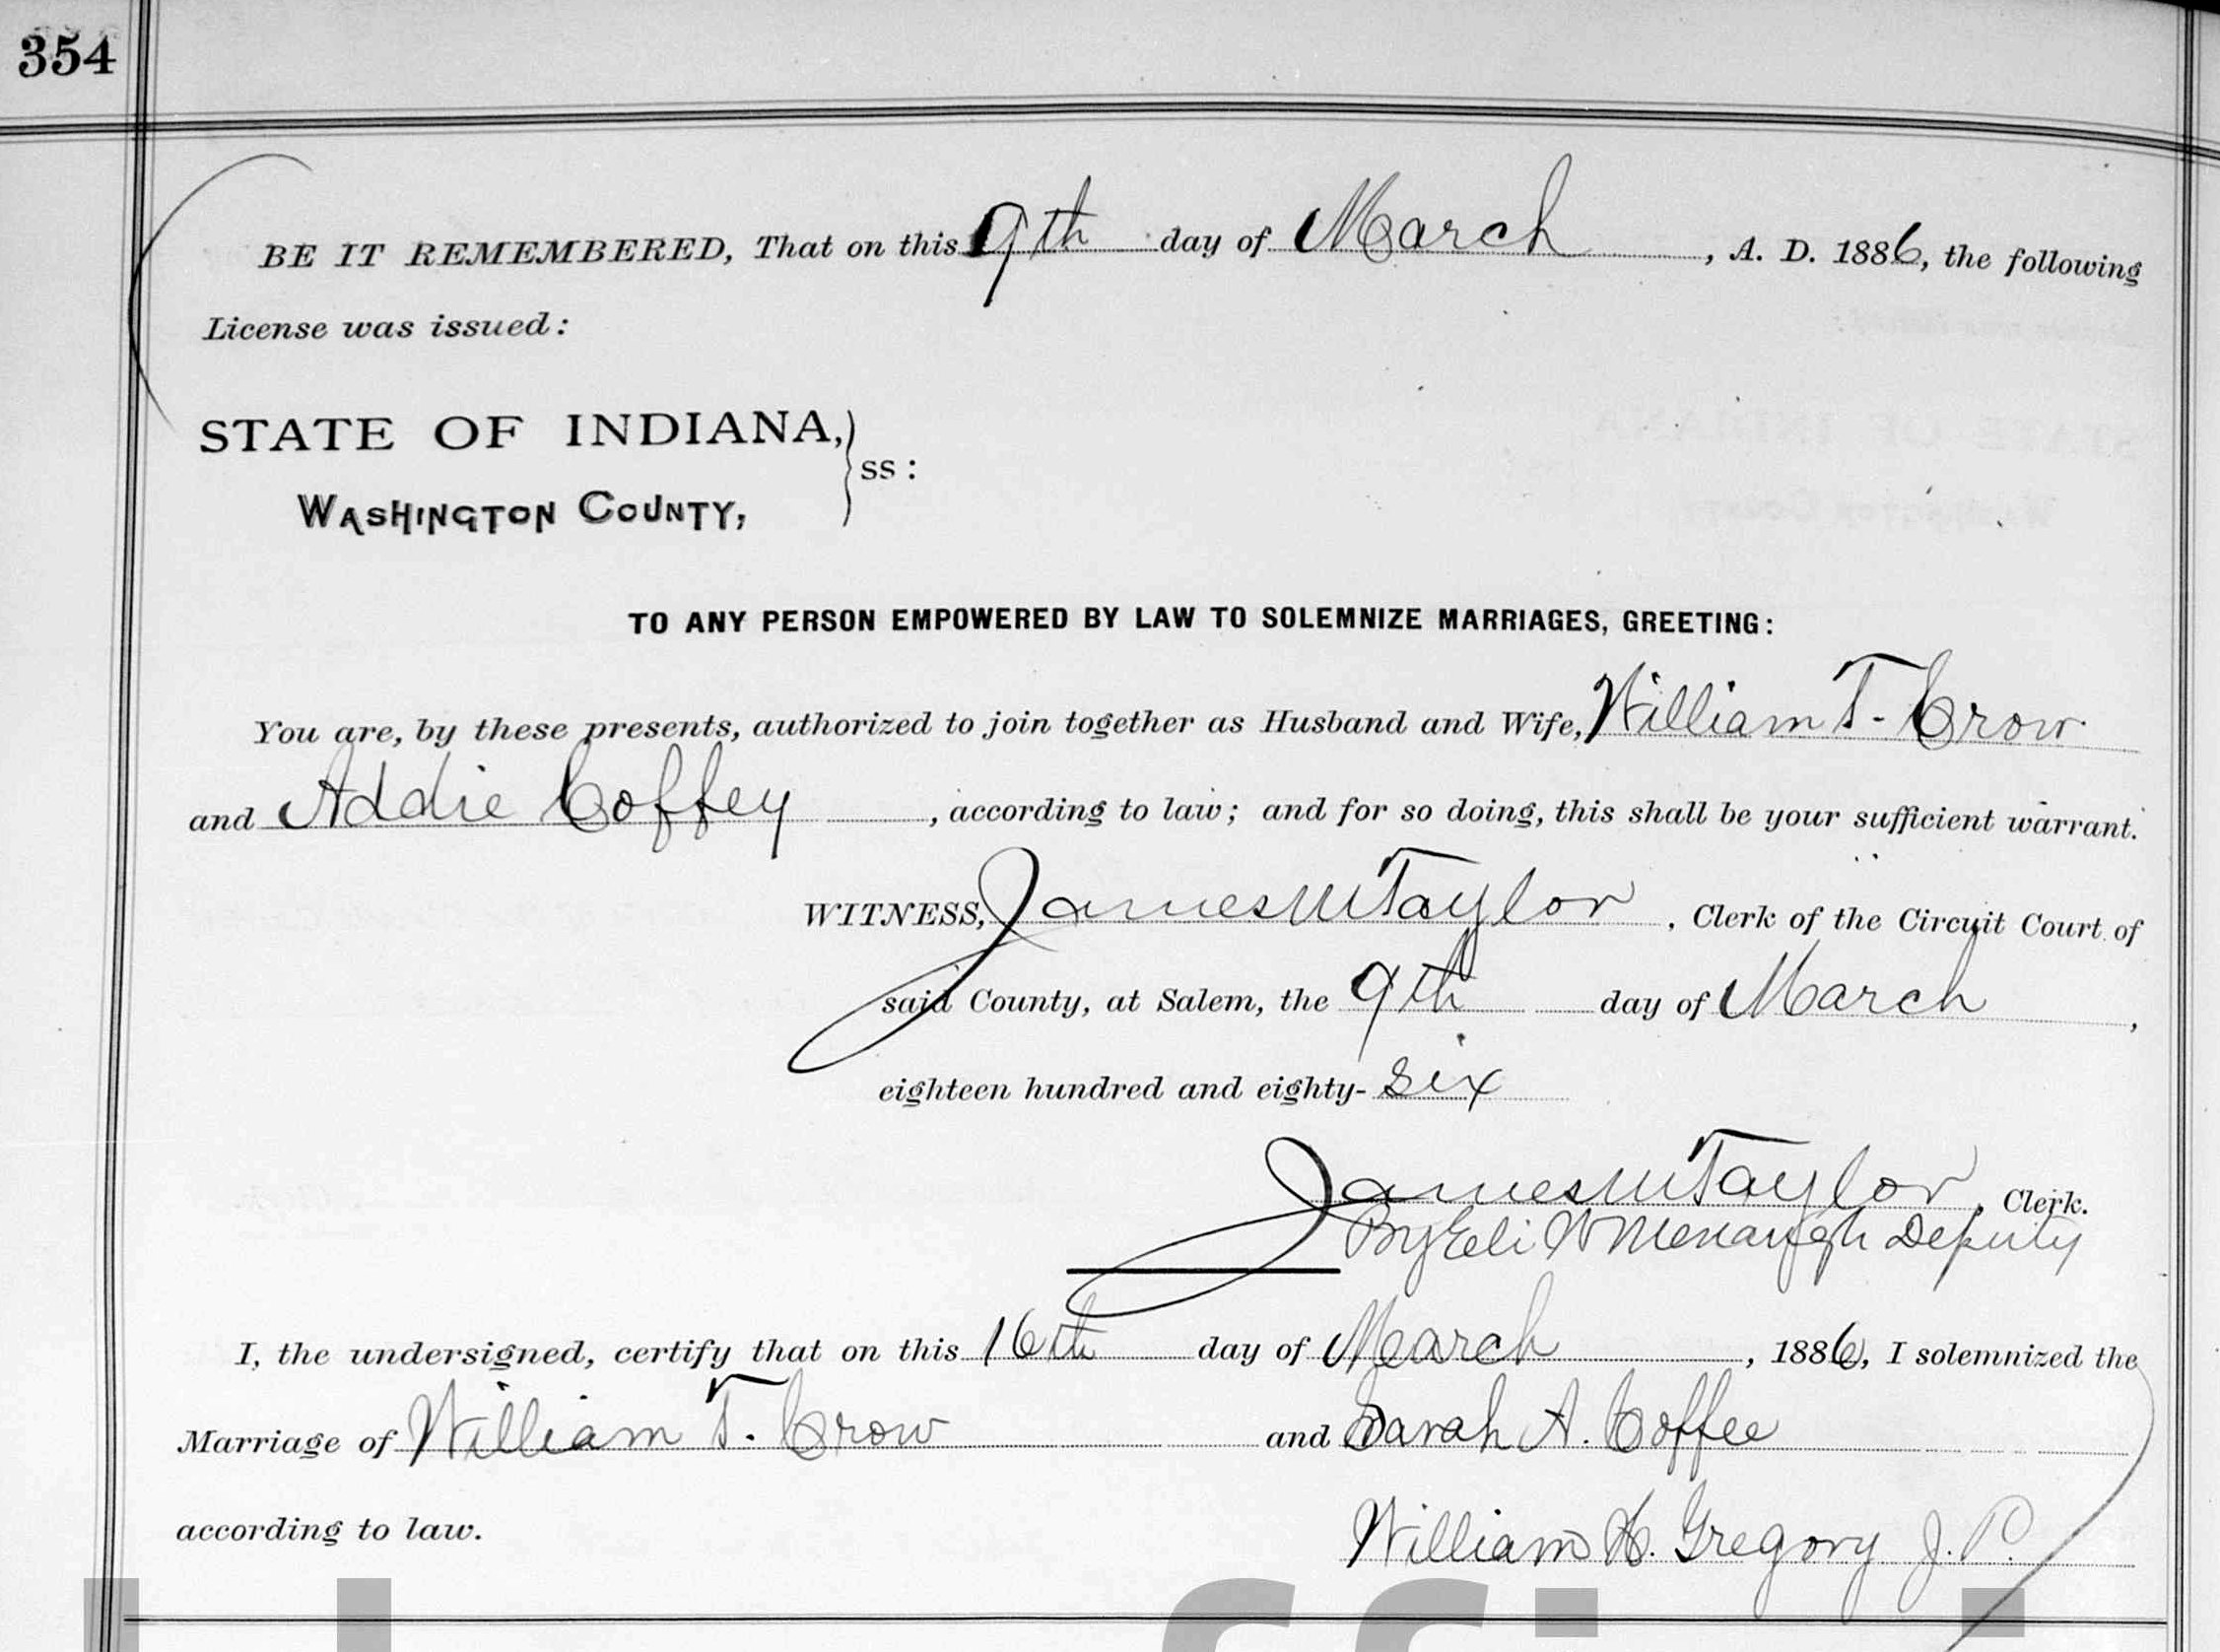 354
BE IT REMEMBERED, That on this 9th day of March, A. D. 1886, the following
License was issued:
STATE OF INDIANA,
WASHINGTON COUNTY,
} ss:
TO ANY PERSON EMPOWERED BY LAW TO SOLEMNIZE MARRIAGES, GREETING:
You are, by these presents, authorized to join together as Husband and Wife, William T. Crow
and Addie Coffey, according to law; and for so doing, this shall be your sufficient warrant.
WITNESS, James M Taylor, Clerk of the Circuit Court of
said County, at Salem, the 9th day of March,
eighteen hundred and eighty-six
James M Taylor, Clerk.
By Eli W Menaugh Deputy
I, the undersigned, certify that on this 16th day of March, 1886, I solemnized the
Marriage of William T. Crow and Sarah A. Coffee
according to law.
William H. Gregory J. P.